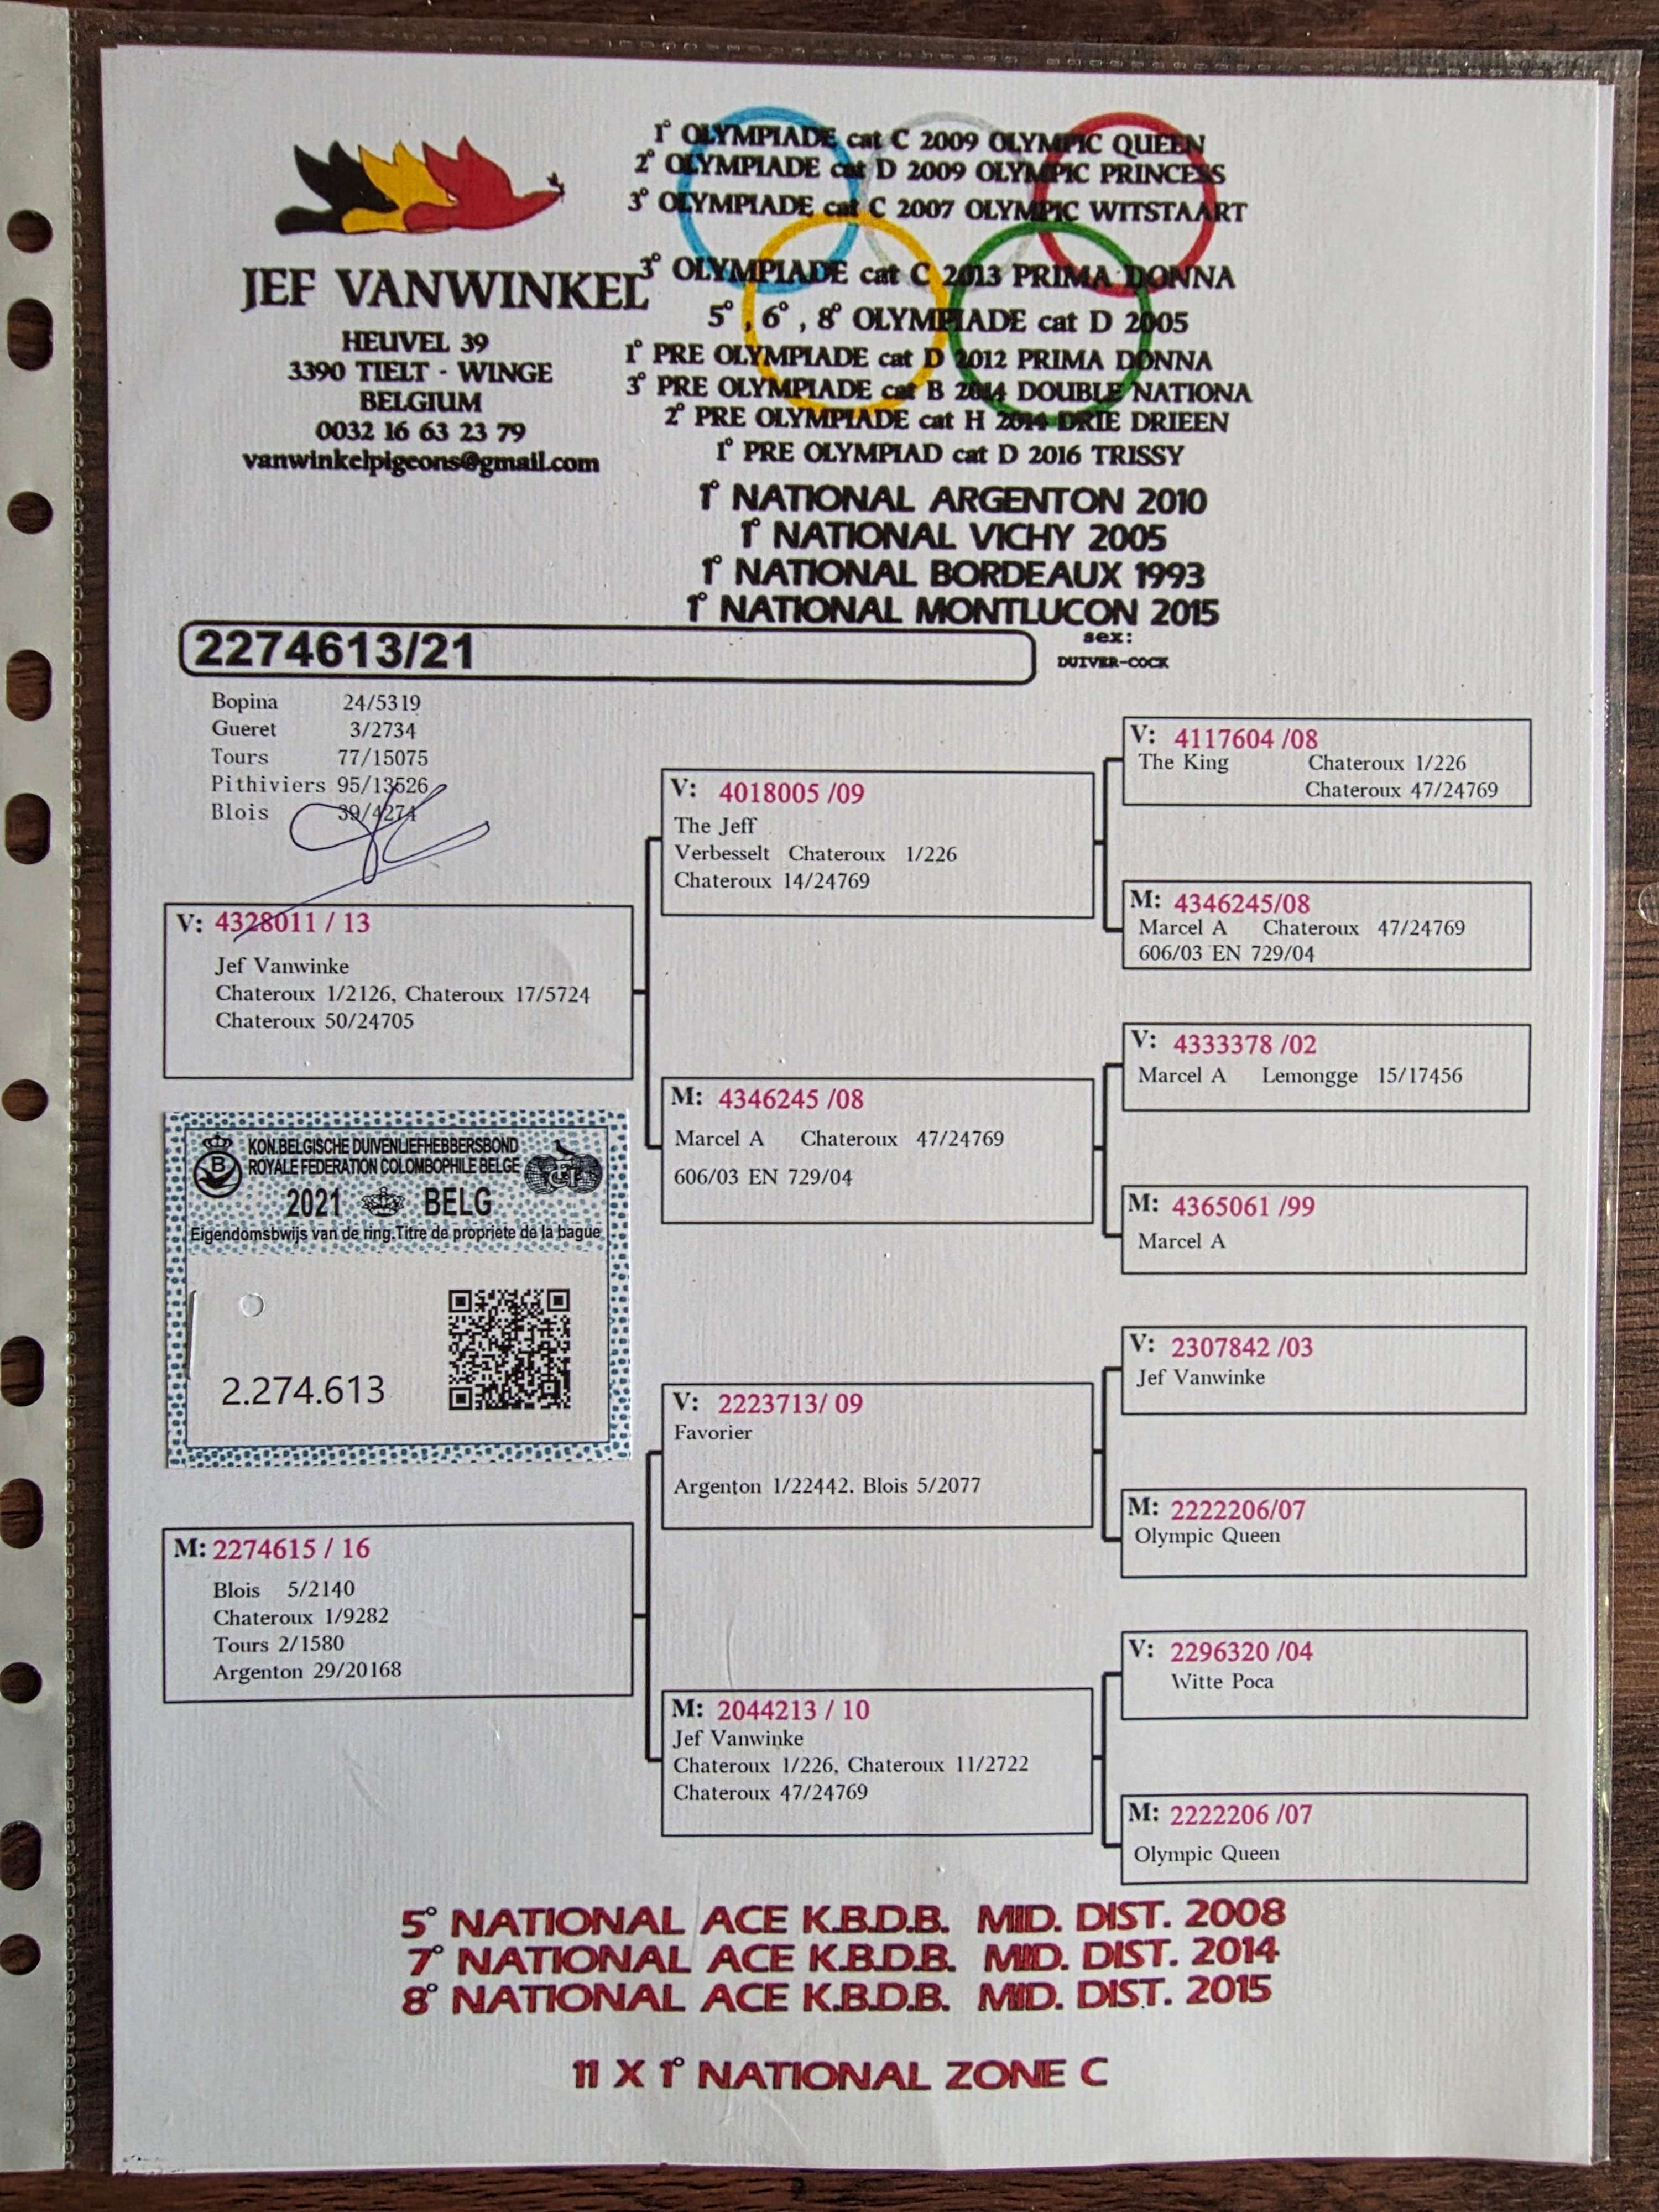 1° OLYMPIADE cat C 2009 OLYMPIC QUEEN
2° OLYMPIADE cat D 2009 OLYMPIC PRINCESS
3° OLYMPIADE cat C 2007 OLYMPIC WITSTAART
3° OLYMPIADE cat C 2013 PRIMA DONNA
5° , 6° , 8° OLYMPIADE cat D 2005
1° PRE OLYMPIADE cat D 2012 PRIMA DONNA
3° PRE OLYMPIADE cat B 2014 DOUBLE NATIONA
2° PRE OLYMPIADE cat H 2014 DRIE DRIEEN
1° PRE OLYMPIAD cat D 2016 TRISSY
1° NATIONAL ARGENTON 2010
1° NATIONAL VICHY 2005
1° NATIONAL BORDEAUX 1993
1° NATIONAL MONTLUCON 2015
JEF VANWINKEL
HEUVEL 39
3390 TIELT - WINGE
BELGIUM
0032 16 63 23 79
vanwinkelpigeons@gmail.com
2274613/21
sex:
DUIVER-COCK
Bopina 24/5319
Gueret 3/2734
Tours 77/15075
Pithiviers 95/13526
Blois 39/4274
V: 4328011 / 13
Jef Vanwinke
Chateroux 1/2126, Chateroux 17/5724
Chateroux 50/24705
KON.BELGISCHE DUIVENLIEFHEBBERSBOND
ROYALE FEDERATION COLOMBOPHILE BELGE
B
2021 BELG
Eigendomsbwijs van de ring.Titre de propriete de la bague
2.274.613
M: 2274615 / 16
Blois 5/2140
Chateroux 1/9282
Tours 2/1580
Argenton 29/20168
V: 4018005 /09
The Jeff
Verbesselt Chateroux 1/226
Chateroux 14/24769
M: 4346245 /08
Marcel A Chateroux 47/24769
606/03 EN 729/04
V: 2223713/ 09
Favorier
Argenton 1/22442. Blois 5/2077
M: 2044213 / 10
Jef Vanwinke
Chateroux 1/226, Chateroux 11/2722
Chateroux 47/24769
V: 4117604 /08
The King Chateroux 1/226
Chateroux 47/24769
M: 4346245/08
Marcel A Chateroux 47/24769
606/03 EN 729/04
V: 4333378 /02
Marcel A Lemongge 15/17456
M: 4365061 /99
Marcel A
V: 2307842 /03
Jef Vanwinke
M: 2222206/07
Olympic Queen
V: 2296320 /04
Witte Poca
M: 2222206 /07
Olympic Queen
5° NATIONAL ACE K.B.D.B. MID. DIST. 2008
7° NATIONAL ACE K.B.D.B. MID. DIST. 2014
8° NATIONAL ACE K.B.D.B. MID. DIST. 2015
11 X 1° NATIONAL ZONE C